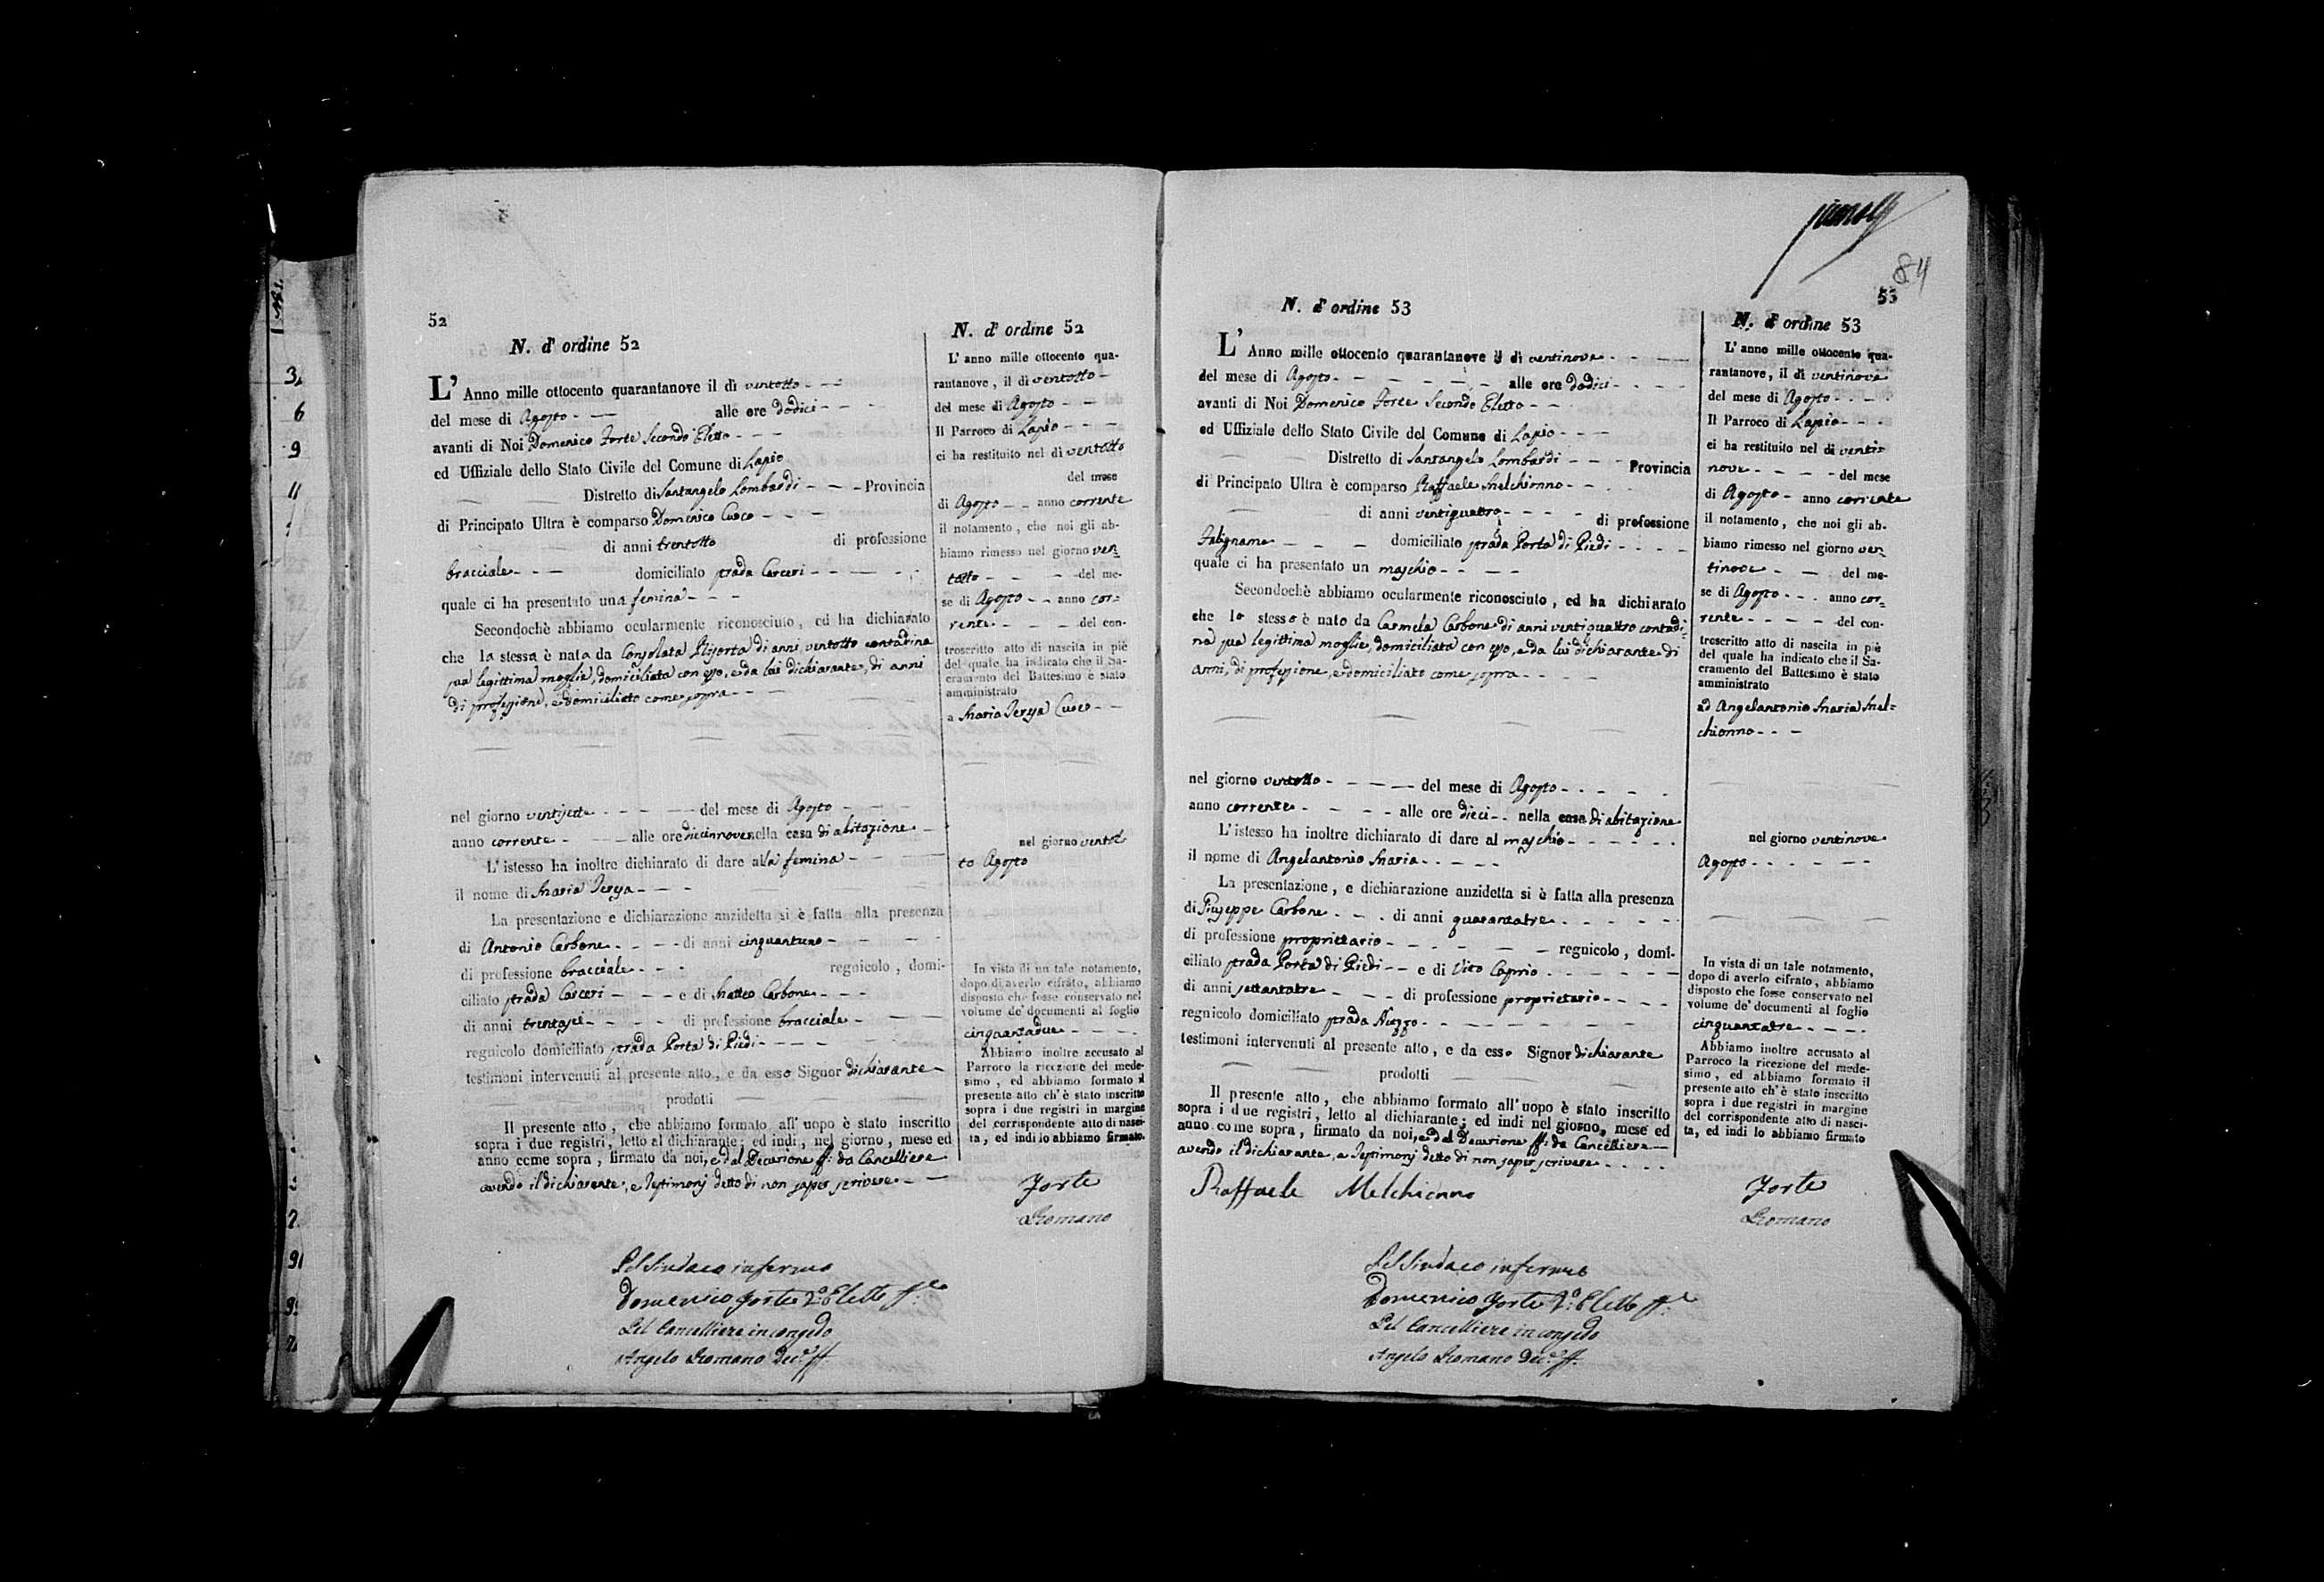 52
N. d' ordine 52
L' Anno mille ottocento quarantanove il dì ventotto
del mese di Agosto alle ore dodici
avanti di Noi Domenico Forte Secondo Eletto
ed Uffiziale dello Stato Civile del Comune di Lapio
Distretto di Santangelo Lombardi Provincia
di Principato Ultra è comparso Domenico Cuoco
di anni trentotto di professione
bracciale domiciliato strada Carceri
quale ci ha presentato una femina
Secondochè abbiamo ocularmente riconosciuto, ed ha dichiarato
che la stessa è nata da Consolata di anni ventotto contadina
sua legittima moglie, domiciliata con esso, e da lui dichiarante, di anni
di professione, e domiciliato come sopra
nel giorno ventisette del mese di Agosto
anno corrente alle ore diecinnove nella casa di abitazione
L' istesso ha inoltre dichiarato di dare alla femina
il nome di Maria Teresa
La presentazione e dichiarazione anzidetta si è fatta alla presenza
di Antonio Carbone di anni cinquantuno
di professione bracciale regnicolo, domi-
ciliato strada Carceri e di Matteo Carbone
di anni trentasei di professione bracciale
regnicolo domiciliato strada Porta di Piedi
testimoni intervenuti al presente atto, e da esso Signor dichiarante
prodotti
Il presente atto, che abbiamo formato all' uopo è stato inscritto
sopra i due registri, letto al dichiarante; ed indi, nel giorno, mese ed
anno come sopra, firmato da noi, e dal Decurione ff: da Cancelliere
avendo il dichiarante, e Testimonj detto di non saper scrivere
Pel Sindaco infermo
Domenico Forte 2.º Eletto ff.
Pel Cancelliere in congedo
Angelo Romano Dec.e ff.
N. d' ordine 52
L' anno mille ottocento qua-
rantanove, il dì ventotto
del mese di Agosto
Il Parroco di Lapio
ci ha restituito nel dì ventotto
del mese
di Agosto anno corrente
il notamento, che noi gli ab-
biamo rimesso nel giorno ven
totto del me-
se di Agosto anno cor=
rente del con-
troscritto atto di nascita in piè
del quale ha indicato che il Sa-
cramento del Battesimo è stato
amministrato
a Maria Teresa Cuoco
nel giorno ventot
to Agosto
In vista di un tale notamento,
dopo di averlo cifrato, abbiamo
disposto che fosse conservato nel
volume de' documenti al foglio
cinquantadue
Abbiamo inoltre accusato al
Parroco la ricezione del mede-
simo, ed abbiamo formato il
presente atto ch' è stato inscritto
sopra i due registri in margine
del corrispondente atto di nasci-
ta, ed indi lo abbiamo firmato
Forte
Romano
84
53
N. d' ordine 53
L' Anno mille ottocento quarantanove il dì ventinove
del mese di Agosto alle ore dodici
avanti di Noi Domenico Forte Secondo Eletto
ed Uffiziale dello Stato Civile del Comune di Lapio
Distretto di Santangelo Lombardi Provincia
di Principato Ultra è comparso Raffaele Melchionno
di anni ventiquattro di professione
Falegname domiciliato strada Porta di Piedi
quale ci ha presentato un maschio
Secondochè abbiamo ocularmente riconosciuto, ed ha dichiarato
che lo stesso è nato da Carmela Carbone di anni ventiquattro contadi=
na sua legittima moglie, domiciliata con esso, e da lui dichiarante di
anni, di professione, e domiciliato come sopra
nel giorno ventotto del mese di Agosto
anno corrente alle ore dieci nella casa di abitazione
L' istesso ha inoltre dichiarato di dare al maschio
il nome di Angelantonio Maria
La presentazione, e dichiarazione anzidetta si è fatta alla presenza
di Giuseppe Carbone di anni quarantatre
di professione proprietario regnicolo, domi-
ciliato strada Porta di Piedi e di Vito Caprio
di anni settantatre di professione proprietario
regnicolo domiciliato strada
testimoni intervenuti al presente atto, e da esso Signor dichiarante
prodotti
Il presente atto, che abbiamo formato all' uopo è stato inscritto
sopra i due registri, letto al dichiarante; ed indi nel giorno, mese ed
anno come sopra, firmato da noi, e dal Decurione ff: da Cancelliere
avendo il dichiarante, e Testimonj detto di non saper scrivere
Raffaele Melchionno
Pel Sindaco infermo
Domenico Forte 2.º Eletto ff.
Pel Cancelliere in congedo
Angelo Romano Dec.e ff.
N. d' ordine 53
L' anno mille ottocento qua-
rantanove, il dì ventinove
del mese di Agosto
Il Parroco di Lapio
ci ha restituito nel dì venti=
nove del mese
di Agosto anno corrente
il notamento, che noi gli ab-
biamo rimesso nel giorno ven
tinove del me-
se di Agosto anno cor=
rente del con-
troscritto atto di nascita in piè
del quale ha indicato che il Sa-
cramento del Battesimo è stato
amministrato
ad Angelantonio Maria Mel=
chionno
nel giorno ventinove
Agosto
In vista di un tale notamento,
dopo di averlo cifrato, abbiamo
disposto che fosse conservato nel
volume de' documenti al foglio
cinquantatre
Abbiamo inoltre accusato al
Parroco la ricezione del mede-
simo, ed abbiamo formato il
presente atto ch' è stato inscritto
sopra i due registri in margine
del corrispondente atto di nasci-
ta, ed indi lo abbiamo firmato
Forte
Romano